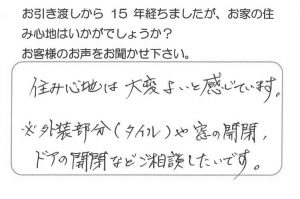 お引き渡しから 15 年経ちましたが、お家の住
み心地はいかがでしょうか？
お客様のお声をお聞かせ下さい。
住み心地は大変よいと感じています。
※外装部分(タイル)や窓の開閉,
ドアの開閉などご相談したいです。